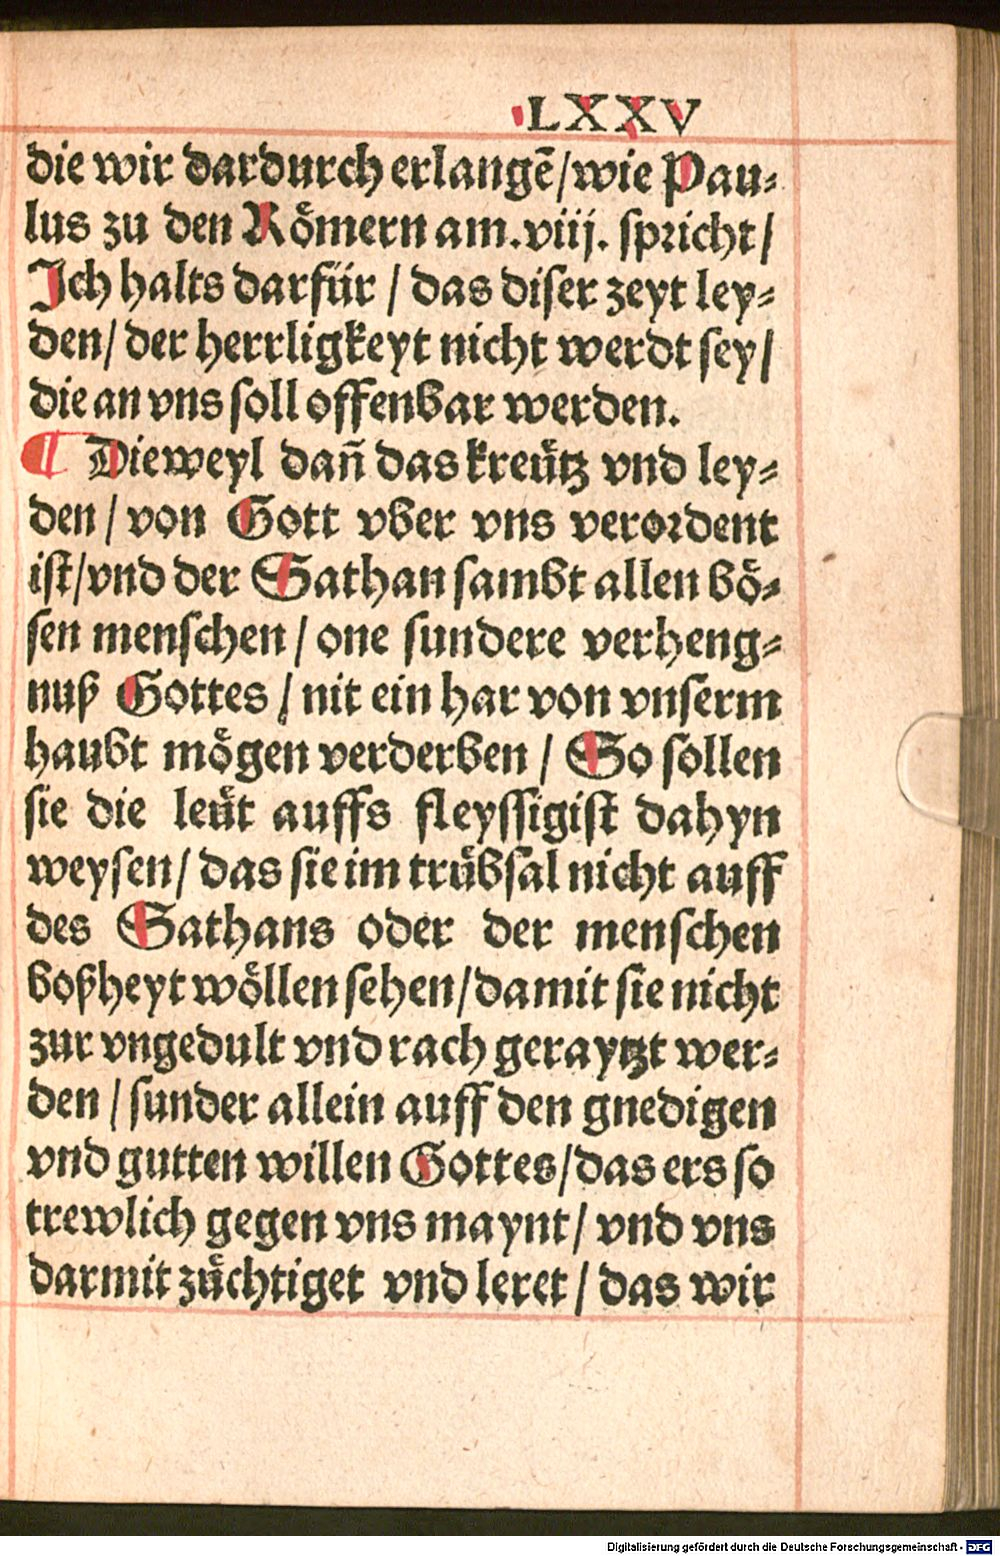 LXXV
die wir dardurch erlangē/wie Pau⸗
lus zu den Römern am.viij. spricht/
Ich halts darfür / das diser zeyt ley⸗
den/ der herrligkeyt nicht werdt sey/
die an vns soll offenbar werden.
¶ Dieweyl dañ das kreütz vnd ley⸗
den / von Gott vber vns verordent
ist/vnd der Sathan sambt allen bö⸗
sen menschen / one sundere verheng⸗
nuß Gottes / nit ein har von vnserm
haubt mögen verderben / So sollen
sie die leüt auffs fleyssigist dahyn
weysen/ das sie im trübsal nicht auff
des Sathans oder der menschen
boßheyt wöllen sehen/damit sie nicht
zur vngedult vnd rach geraytzt wer⸗
den / sunder allein auff den gnedigen
vnd gutten willen Gottes/das ers so
trewlich gegen vns maynt/ vnd vns
darmit züchtiget vnd leret / das wir
Digitalisierung gefördert durch die Deutsche Forschungsgemeinschaft - DFG